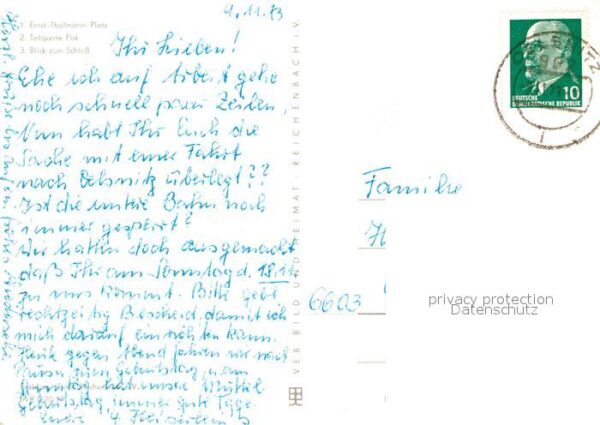 9.11.73
1. Ernst-Thälmann-Platz
2. Talsperre Pirk
3. Blick zum Schloß
Ihr Lieben!
Ehe ich auf Arbeit gehe
noch schnell paar Zeilen.
Nun habt Ihr Euch die
Sache mit einer Fahrt
nach Oelsnitz überlegt??
Ist die untere Bahn noch
immer gesperrt?
Wir hatten doch ausgemacht
daß Ihr am Sonntag d. 18.11.
zu uns kommt. Bitte gebt
rechtzeitig Bescheid, damit ich
mich darauf einrichten kann.
Heute gegen Abend fahren wir nach
zum Geburtstag, u. am
hat unsre
Geburtstag, immer gute Tage.
Herzl. Grüße
VEB BILD UND HEIMAT · REICHENBACH i. V.
OELSNITZ
10
DEUTSCHE
DEMOKRATISCHE REPUBLIK
Familie
H
6603
privacy protection
Datenschutz